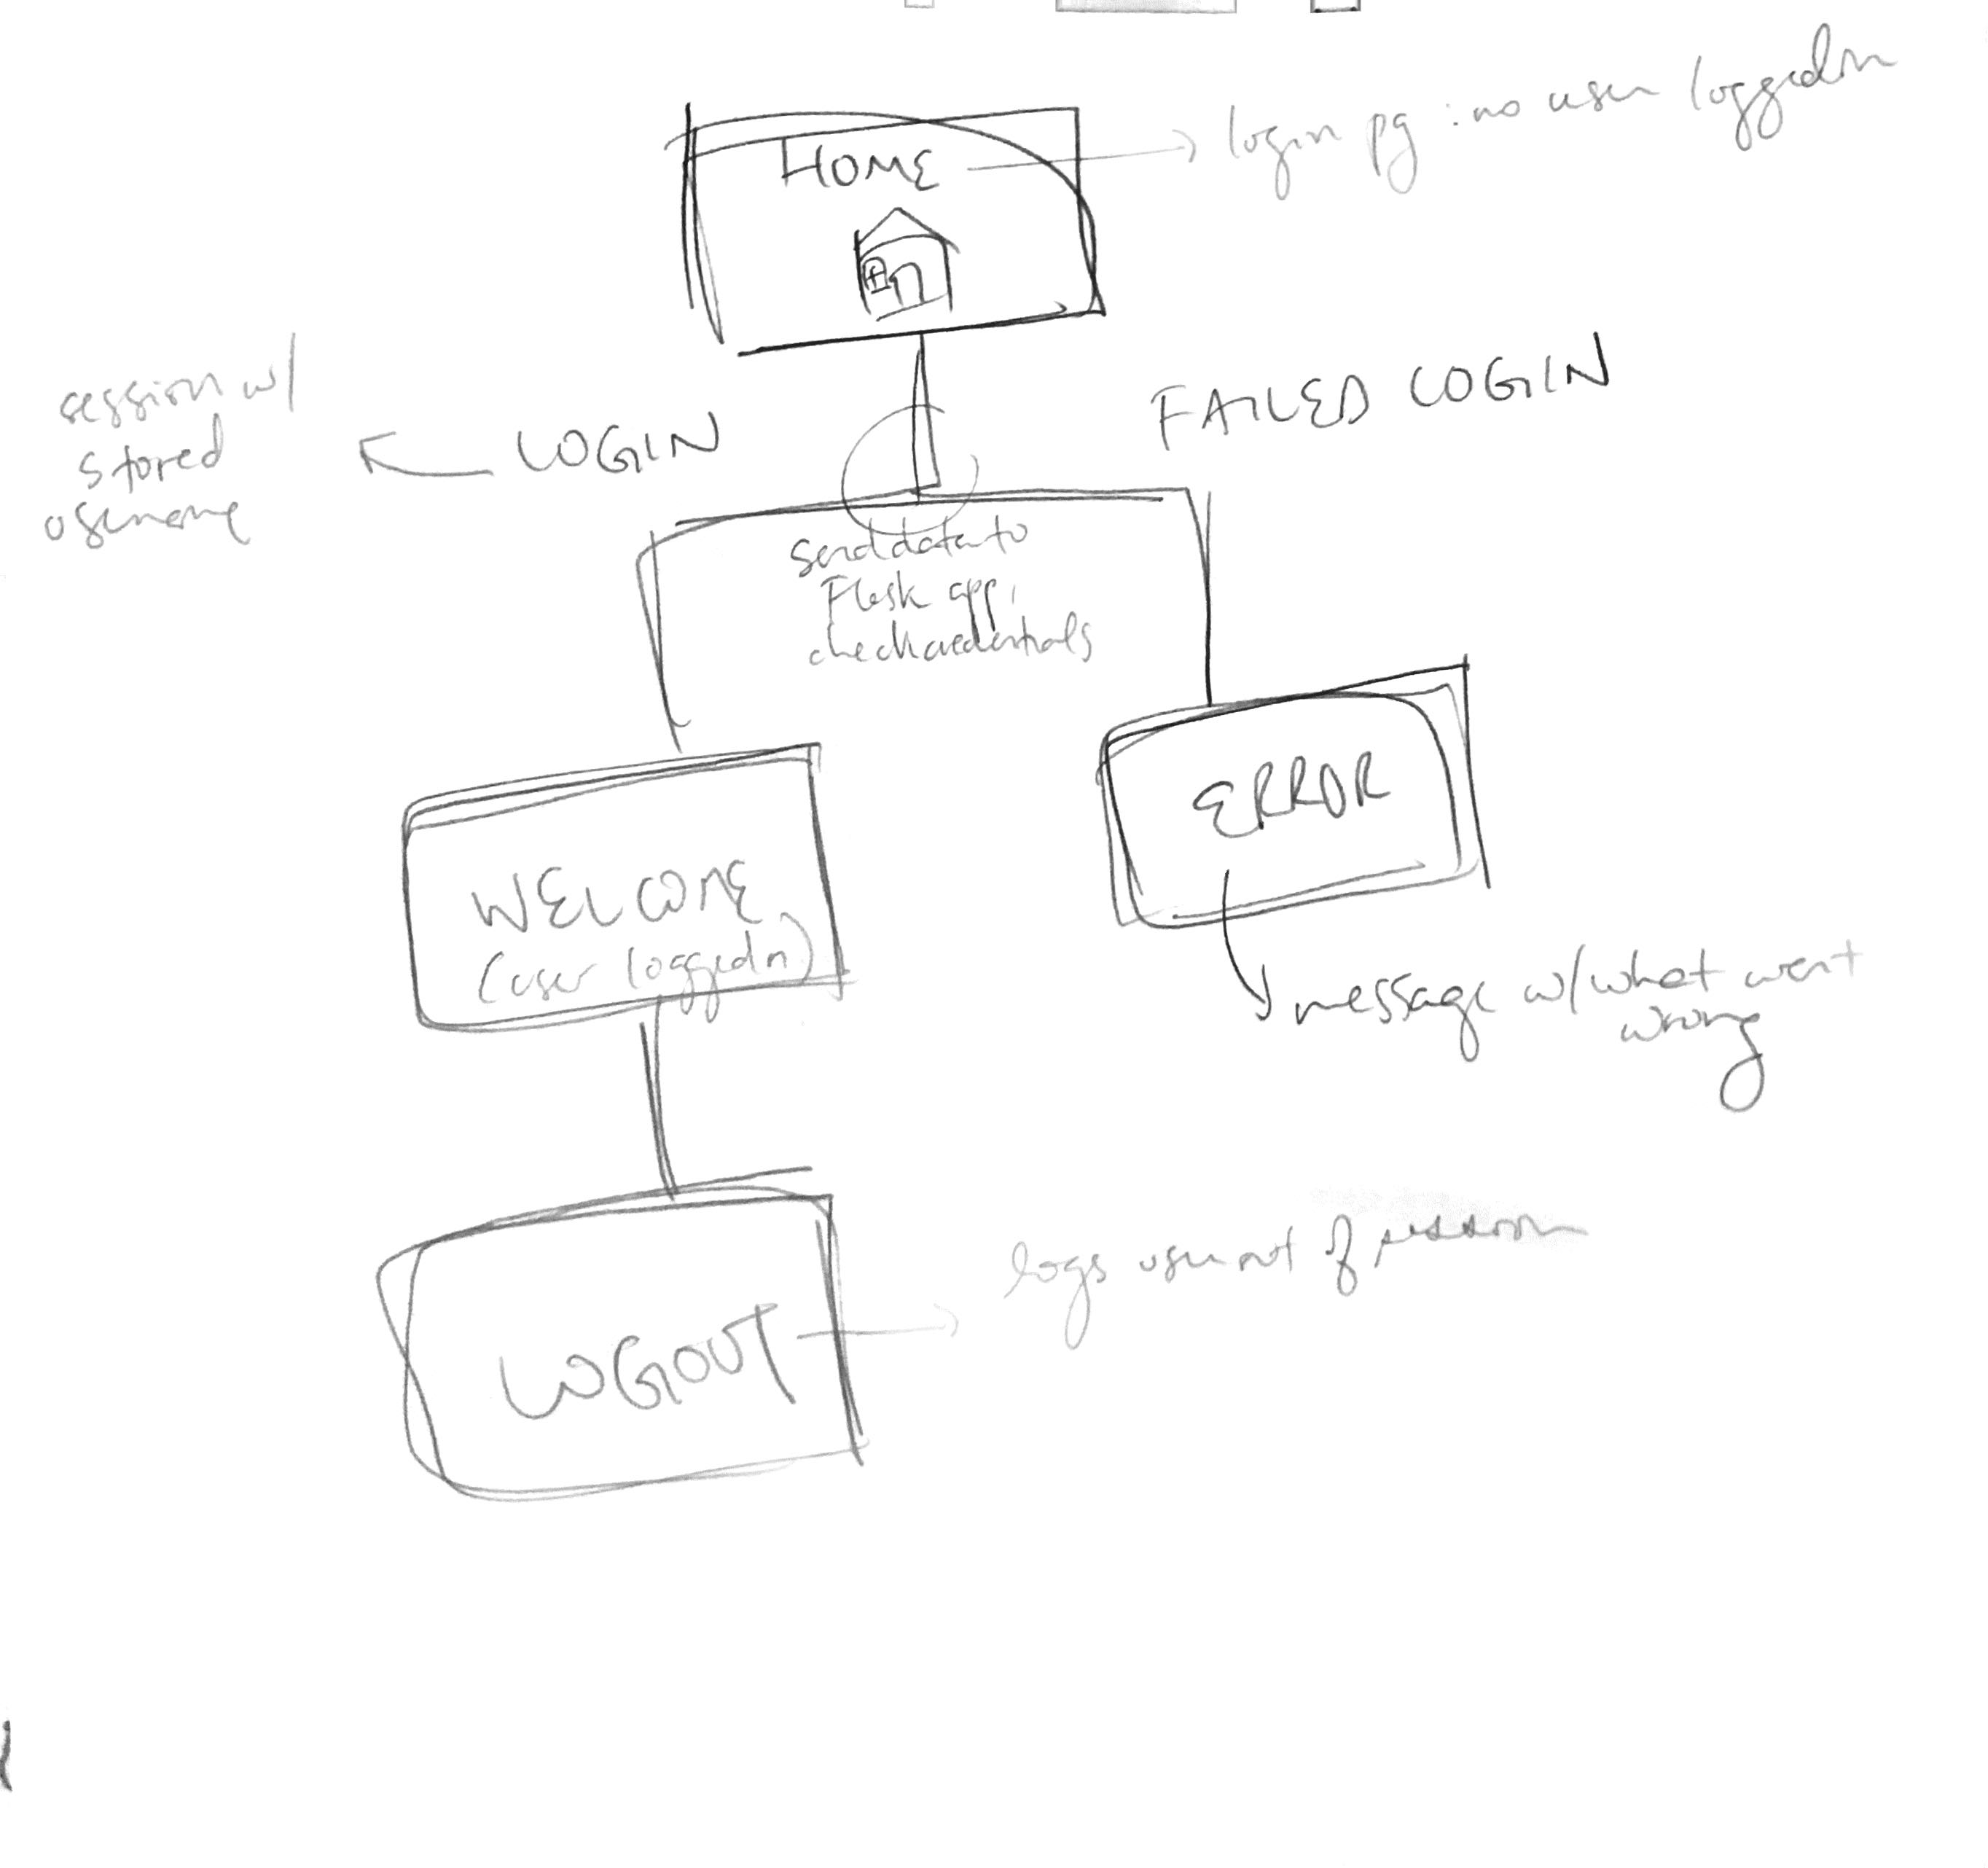 HOME
login pg : no user logged in
session w/
stored
username
LOGIN
FAILED LOGIN
send data to
Flask app,
check credentials
WELCOME
(user logged in)
ERROR
message w/ what went
wrong
LOGOUT
logs user out of session